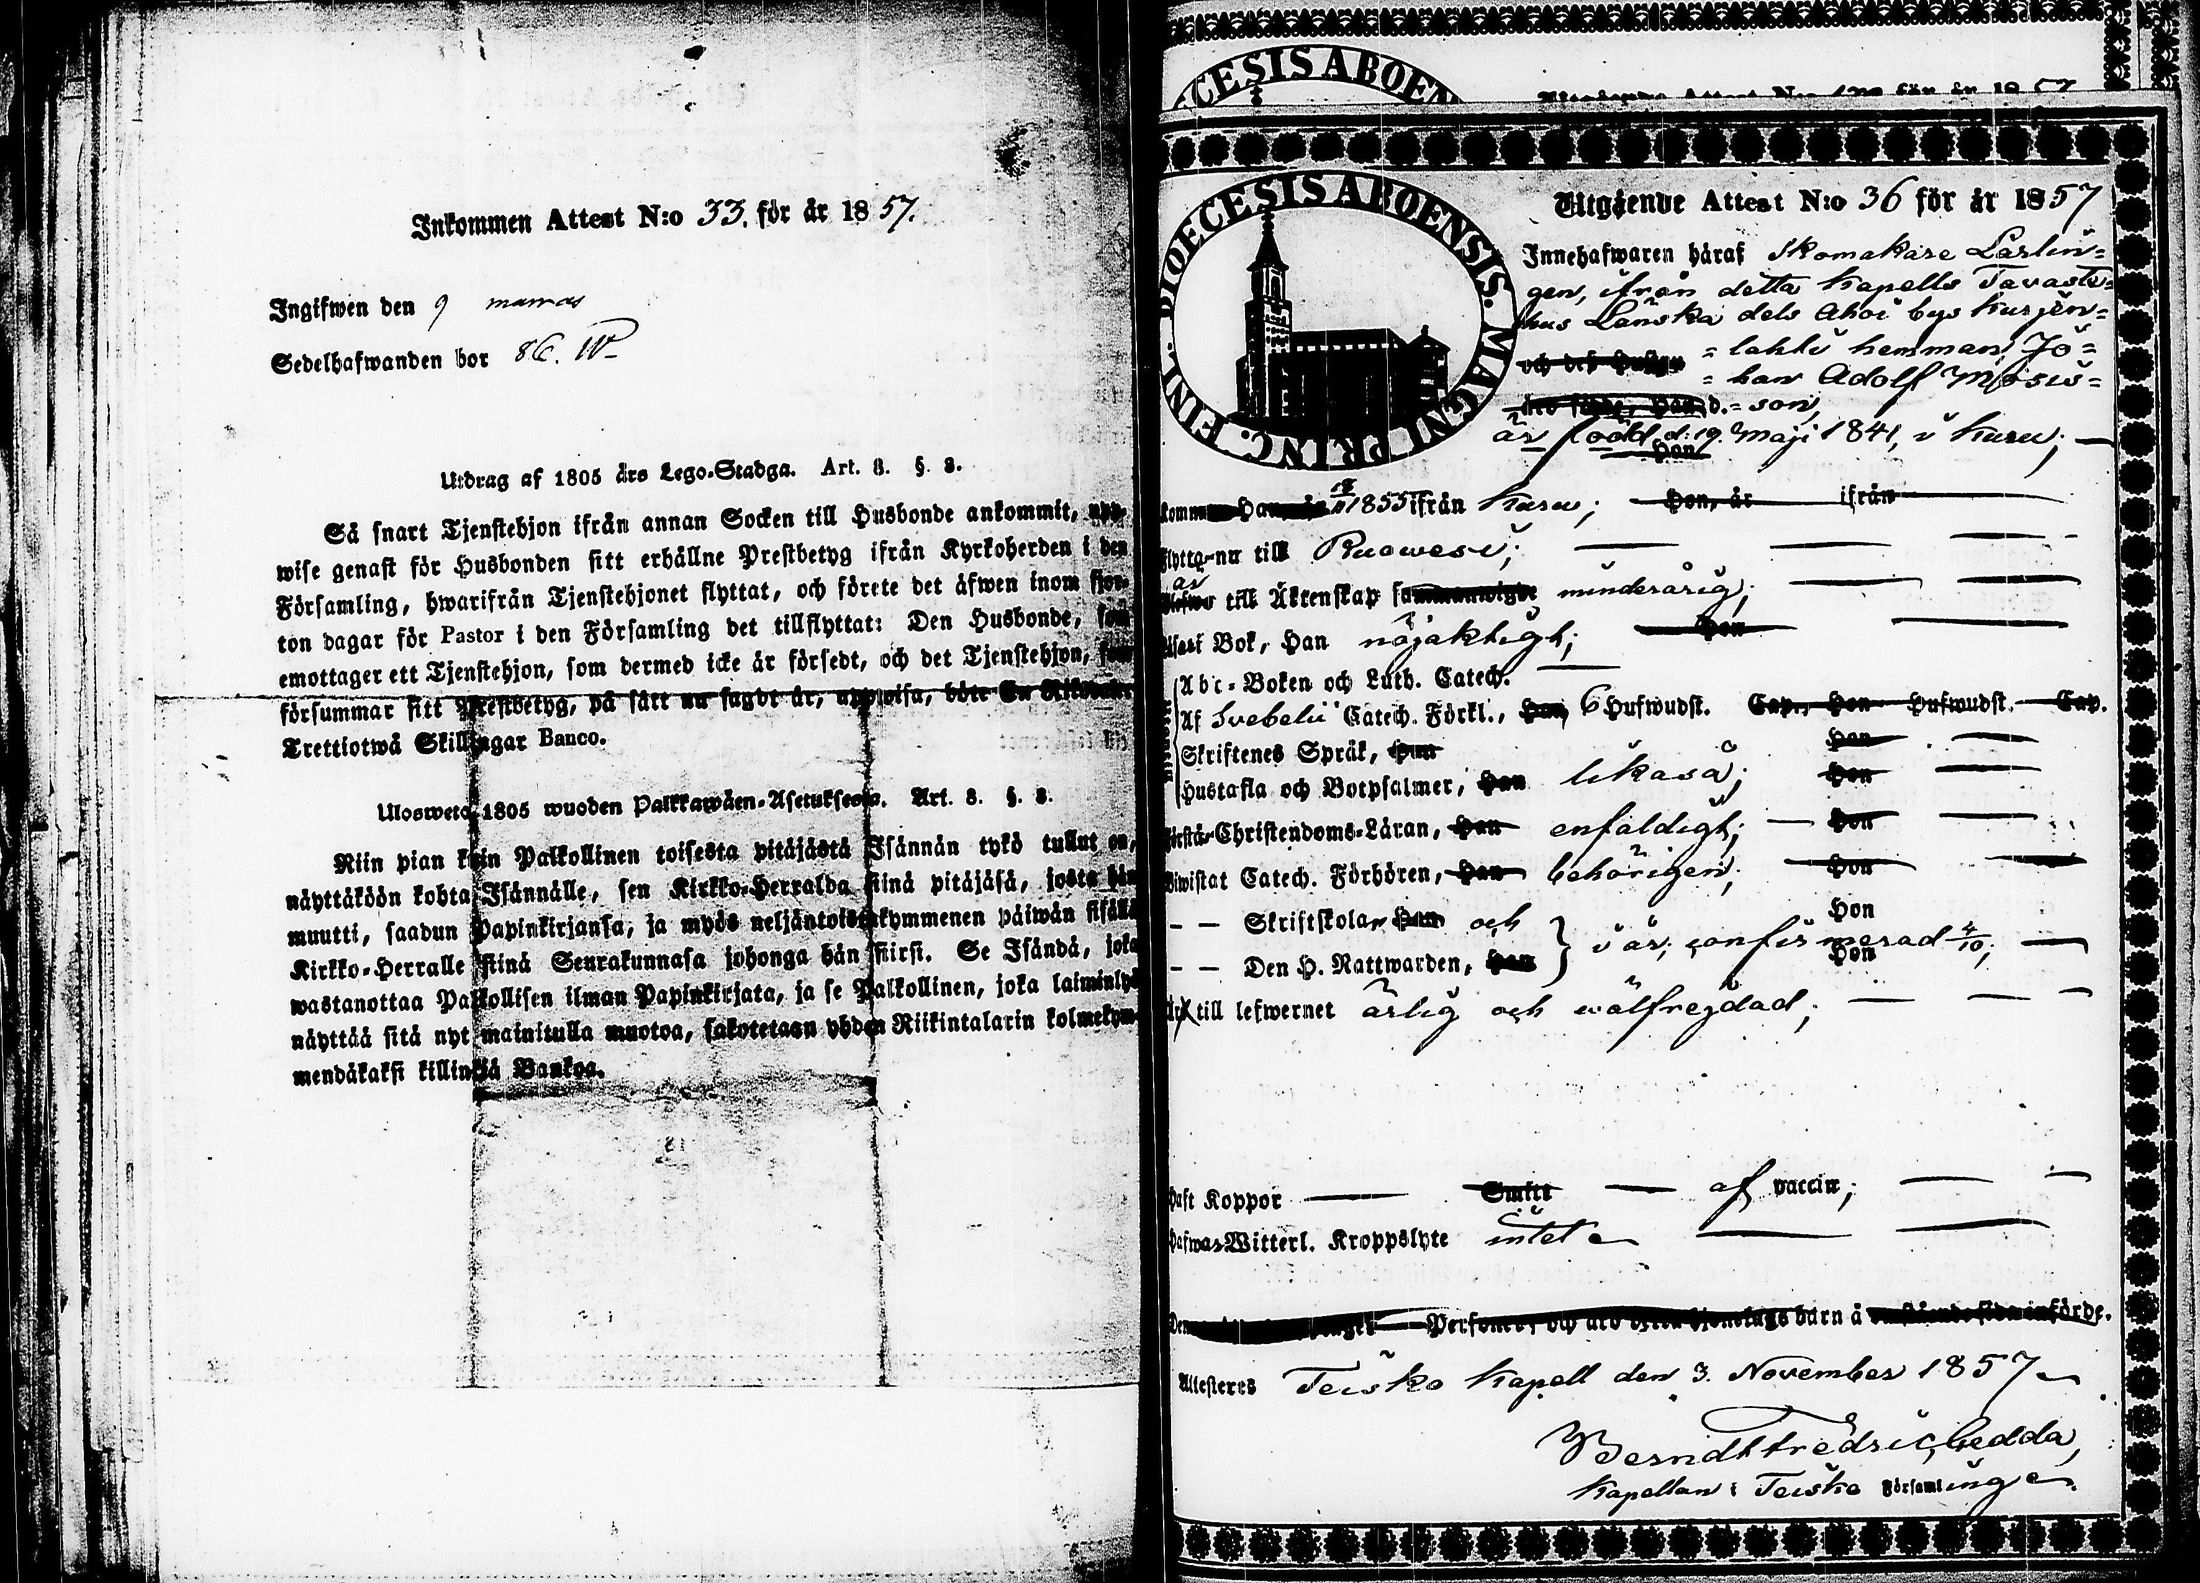 Inkommen Attest N:o 33. för år 1857.
Ingifwen den 9
Sedelhafwanden bor 86.
Utdrag af 1805 års Lego-Stadga. Art. 8. §. 8.
Så snart Tjenstehjon ifrån annan Socken till Husbonde ankommit, upp-
wise genast för Husbonden sitt erhållne Prestbetyg ifrån Kyrkoherden i den
Församling, hwarifrån Tjenstehjonet flyttat, och förete det äfwen inom fjor-
ton dagar för Pastor i den Församling det tillflyttat: Den Husbonde, som
emottager ett Tjenstehjon, som dermed icke är försedt, och det Tjenstehjon, som
försummar sitt Prestbetyg, på sätt nu sagdt är, uppwisa, böte En Riksdaler
Trettiotwå Skillingar Banco.
Uloswetо 1805 wuoden Palkkawäen-Asetuksesta. Art. 8. §. 8.
Niin pian kuin Palkollinen toisesta pitäjästä Isännän tykö tullut on,
näyttäköön kohta Isännälle, sen Kirkko-Herralda siinä pitäjäsä, josta hän
muutti, saadun Papinkirjansa, ja myös neljäntoistakymmenen päiwän sisällä
Kirkko-Herralle siinä Seurakunnasa johonga hän siirsi. Se Isändä, joka
wastanottaa Palkollisen ilman Papinkirjata, ja se Palkollinen, joka laiminlyö
näyttää sitä nyt mainitulla muotoa, sakotetaan yhden Riikintalarin kolmekym-
mendäkaksi killinkiä Bankoa.
CESIS ABOEN
Utgående Attest N:o för år 1857
DIOECESIS ABOENSIS. MAGNI PRINC. FINL.
Utgående Attest N:o 36 för år 1857
Innehafwaren häraf Skomakare Lärlin-
gen, ifrån detta Kapells Tavaste-
hus Länska dels Ahoi bys Kurjen-
och des Hustru = lahti hemman, Jo-
= han Adolf Mosis-
= son,
är född d: 19 Maji 1841, i Kuru;
Hon
Han 18/11 1855 ifrån Kuru; Hon, år ifrån
flytta nu till Ruowesi;
är
till Äktenskap minderårig;
Bok, Han nöjaktigt; Hon
Abc-Boken och Luth. Catech.
Af Svebelii Catech. Förkl., Han 6 Hufwudst. Cap., Hon Hufwudst. Cap.
Skriftenes Språk, Han Hon
Hustafla och Botpsalmer, Han likaså; Hon
Förstå Christendoms-Läran, Han enfaldigt; Hon
Biwistat Catech. Förhören, Han behörigen; Hon
— — Skriftskola, Han och Hon
— — Den H. Nattwarden, Han } i år, confirmerad 4/10; Hon
Är till lefwernet ärlig och wälfrejdad;
Haft Koppor Smitt af vaccin;
Hafwa Witterl. Kroppslyte intet
Personer, barn å införde.
Attesteres Teisko Kapell den 3. November 1857
Berndt Fredric Gedda,
Kapellan i Teisko Församlingen.